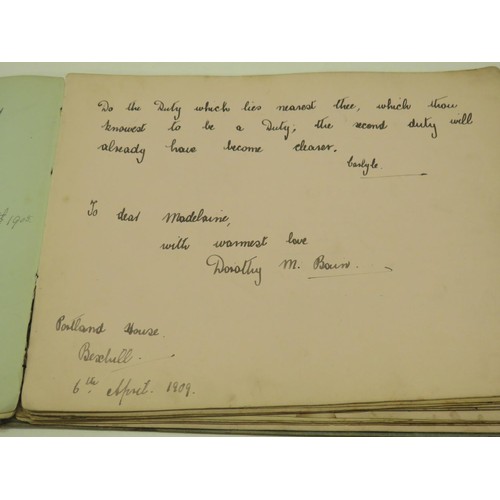 Do the Duty which lies nearest thee, which thou
knowest to be a Duty; the second duty will
already have become clearer.
Carlyle.
To dear Madelaine,
with warmest love
Dorothy M.
Portland House.
Bexhill.
6th April. 1909.